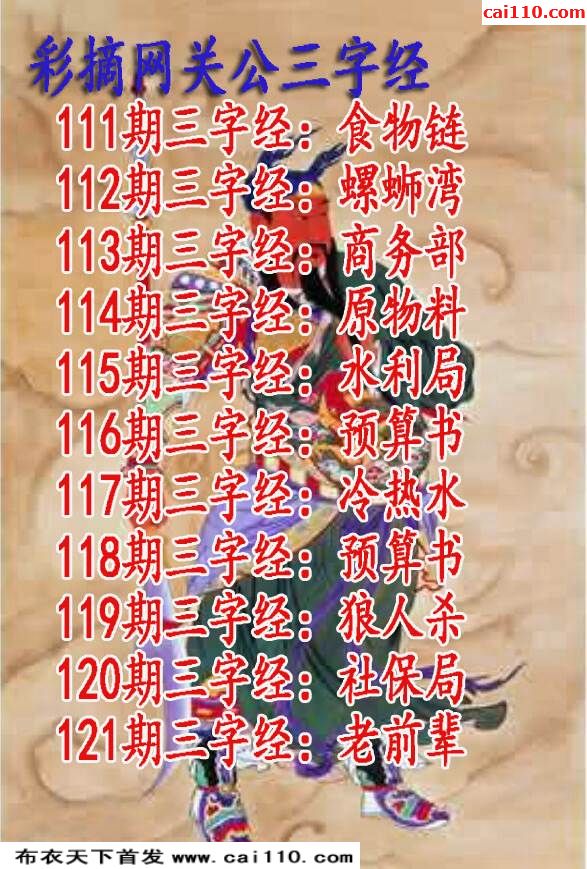 cai110.com
彩摘网关公三字经
111期三字经：食物链
112期三字经：螺蛳湾
113期三字经：商务部
114期三字经：原物料
115期三字经：水利局
116期三字经：预算书
117期三字经：冷热水
118期三字经：预算书
119期三字经：狼人杀
120期三字经：社保局
121期三字经：老前辈
布衣天下首发 www.cai110.com